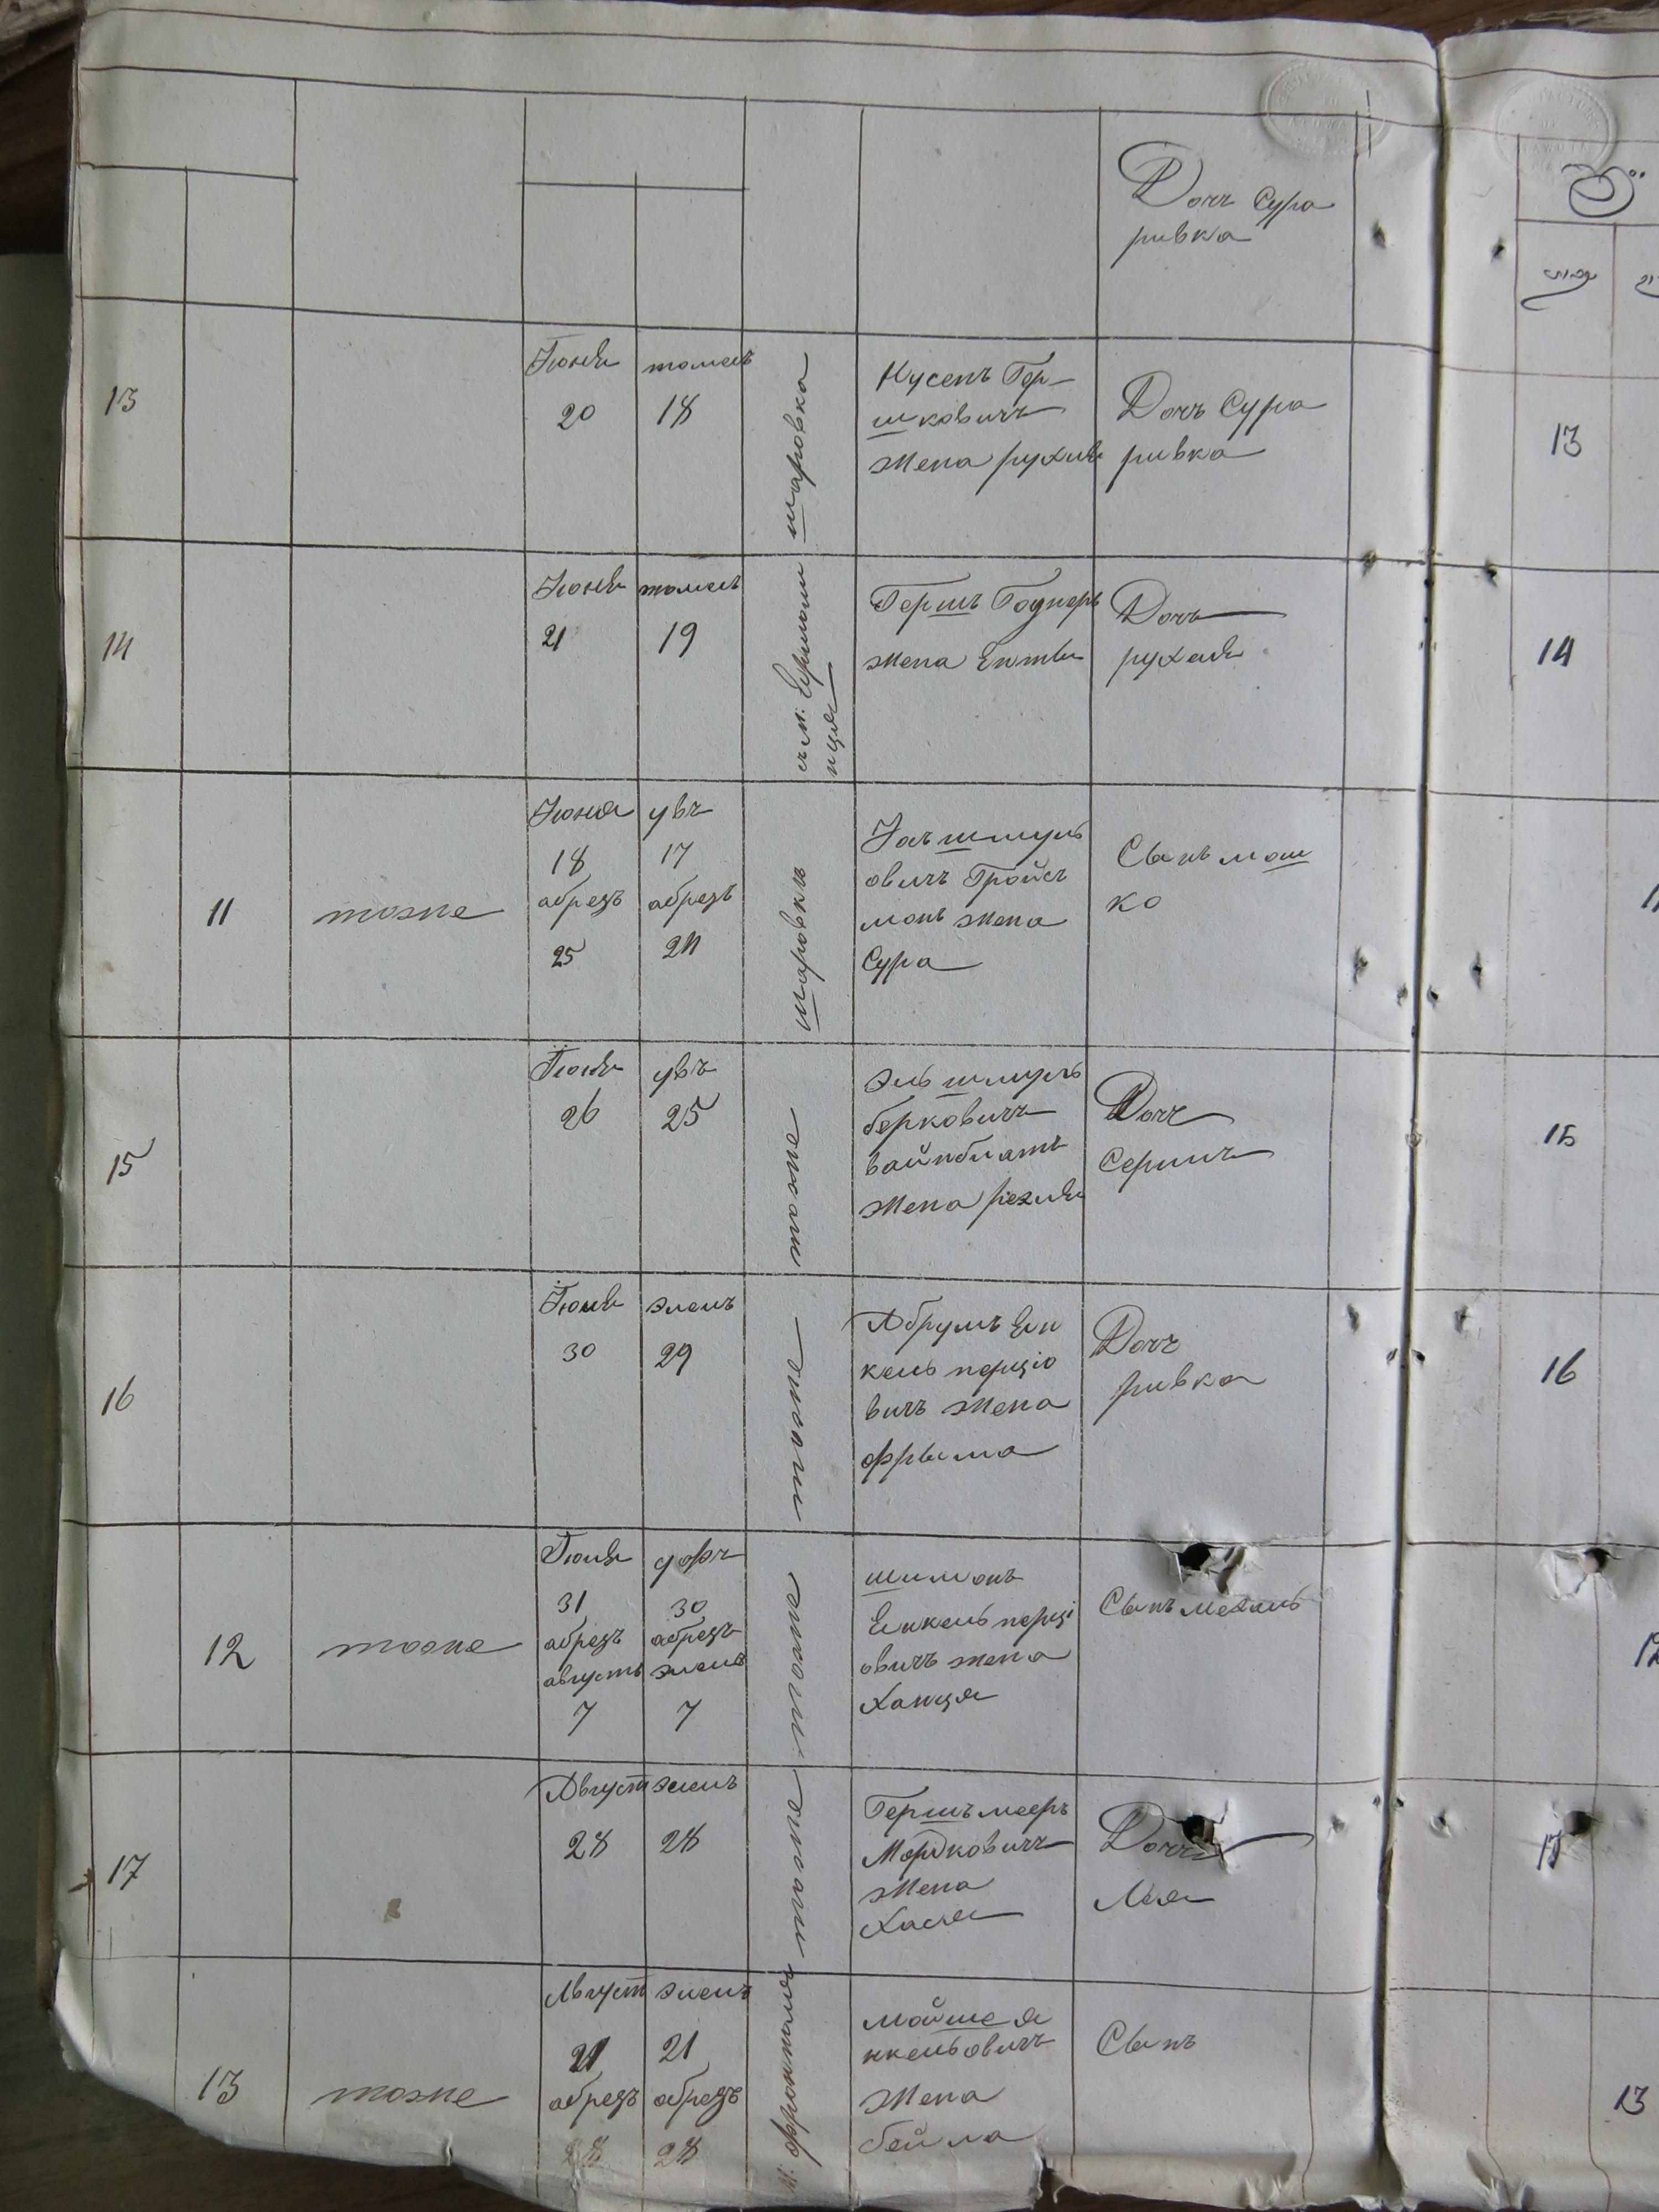 Дочь Сура
ривка
13
Іюня
20
тамезъ
18
шаровка
Нусенъ Гер-
шковичъ
жена рухля
Дочъ Сура
ривка
13
14
Іюня
21
тамезъ
19
Гершъ
жена Ентля
Дочь
рухля
14
11
тоже
Іюня
18
обрезъ
25
увъ
17
обрезъ
24
шаровкъ
овичъ Гройс
монъ жена
Сура
Сынъ мош
ко
15
26
увъ
25
тоже
шмуль
берковичъ
вайнблатъ
жена рехля
Дочь
15
16
30
элелъ
29
тоже
Абрумъ Ен
кель перціо
вичъ жена
фрыма
Дочь
ривка
16
12
тоже
31
обрезъ
августъ
7
30
обрезъ
элелъ
7
тоже
шимонъ
Енкель перці
овичъ жена
Ханця
Сынъ мехель
12
17
Август
28
элелъ
28
тоже
Гершъ мееръ
Мордковичъ
жена
Хася
Дочь
Лея
17
13
тоже
Август
21
обрезъ
28
элелъ
21
обрезъ
28
мойше я
нкельовичъ
жена
бейла
Сынъ
13